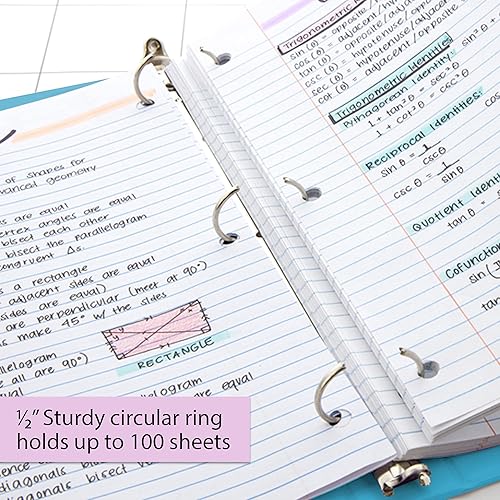 of shapes for
advanced geometry
are equal
vertex angles are equal
bisect each other
bisect the parallelogram
congruent Δs.
is a rectangle
adjacent sides are equal
sides are equal)
are perpendicular (meet at 90°)
is make 45° w/ the sides
RECTANGLE
parallelogram
are all 90°)
parallelogram
are equal
diagonals bisect
Trigonometric
sin (θ) = opposite /
cos (θ) = adjacent / hypotenuse
tan (θ) = opposite / adjacent
csc (θ) = hypotenuse / opposite
cot (θ) = adjacent / opposite
Trigonometric Identities
Pythagorean Identity
1 + tan² θ = sec² θ
1 + cot² θ = csc² θ
Reciprocal Identities
sin θ = 1/csc θ
csc θ = 1/sin θ
Quotient Identit
tan θ =
Cofunction
sin(
½″ Sturdy circular ring
holds up to 100 sheets